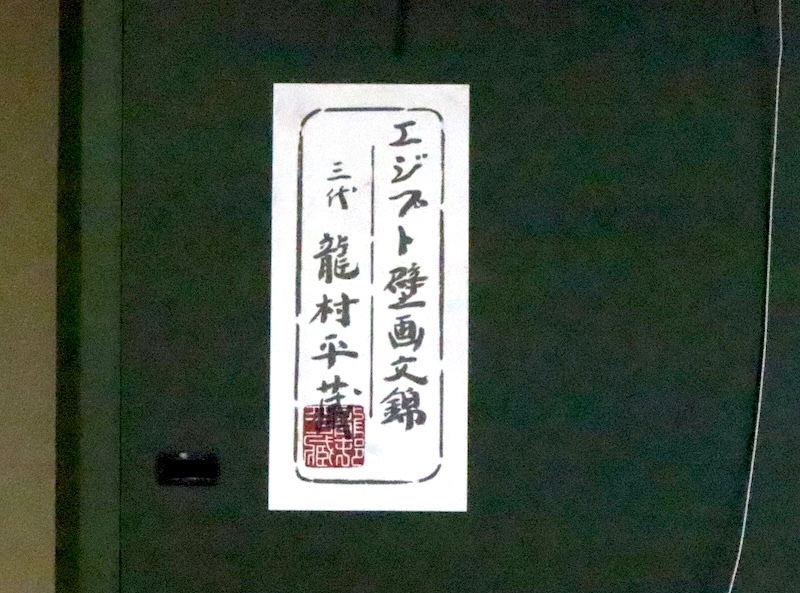 エジプト壁画文錦
三代 龍村平蔵